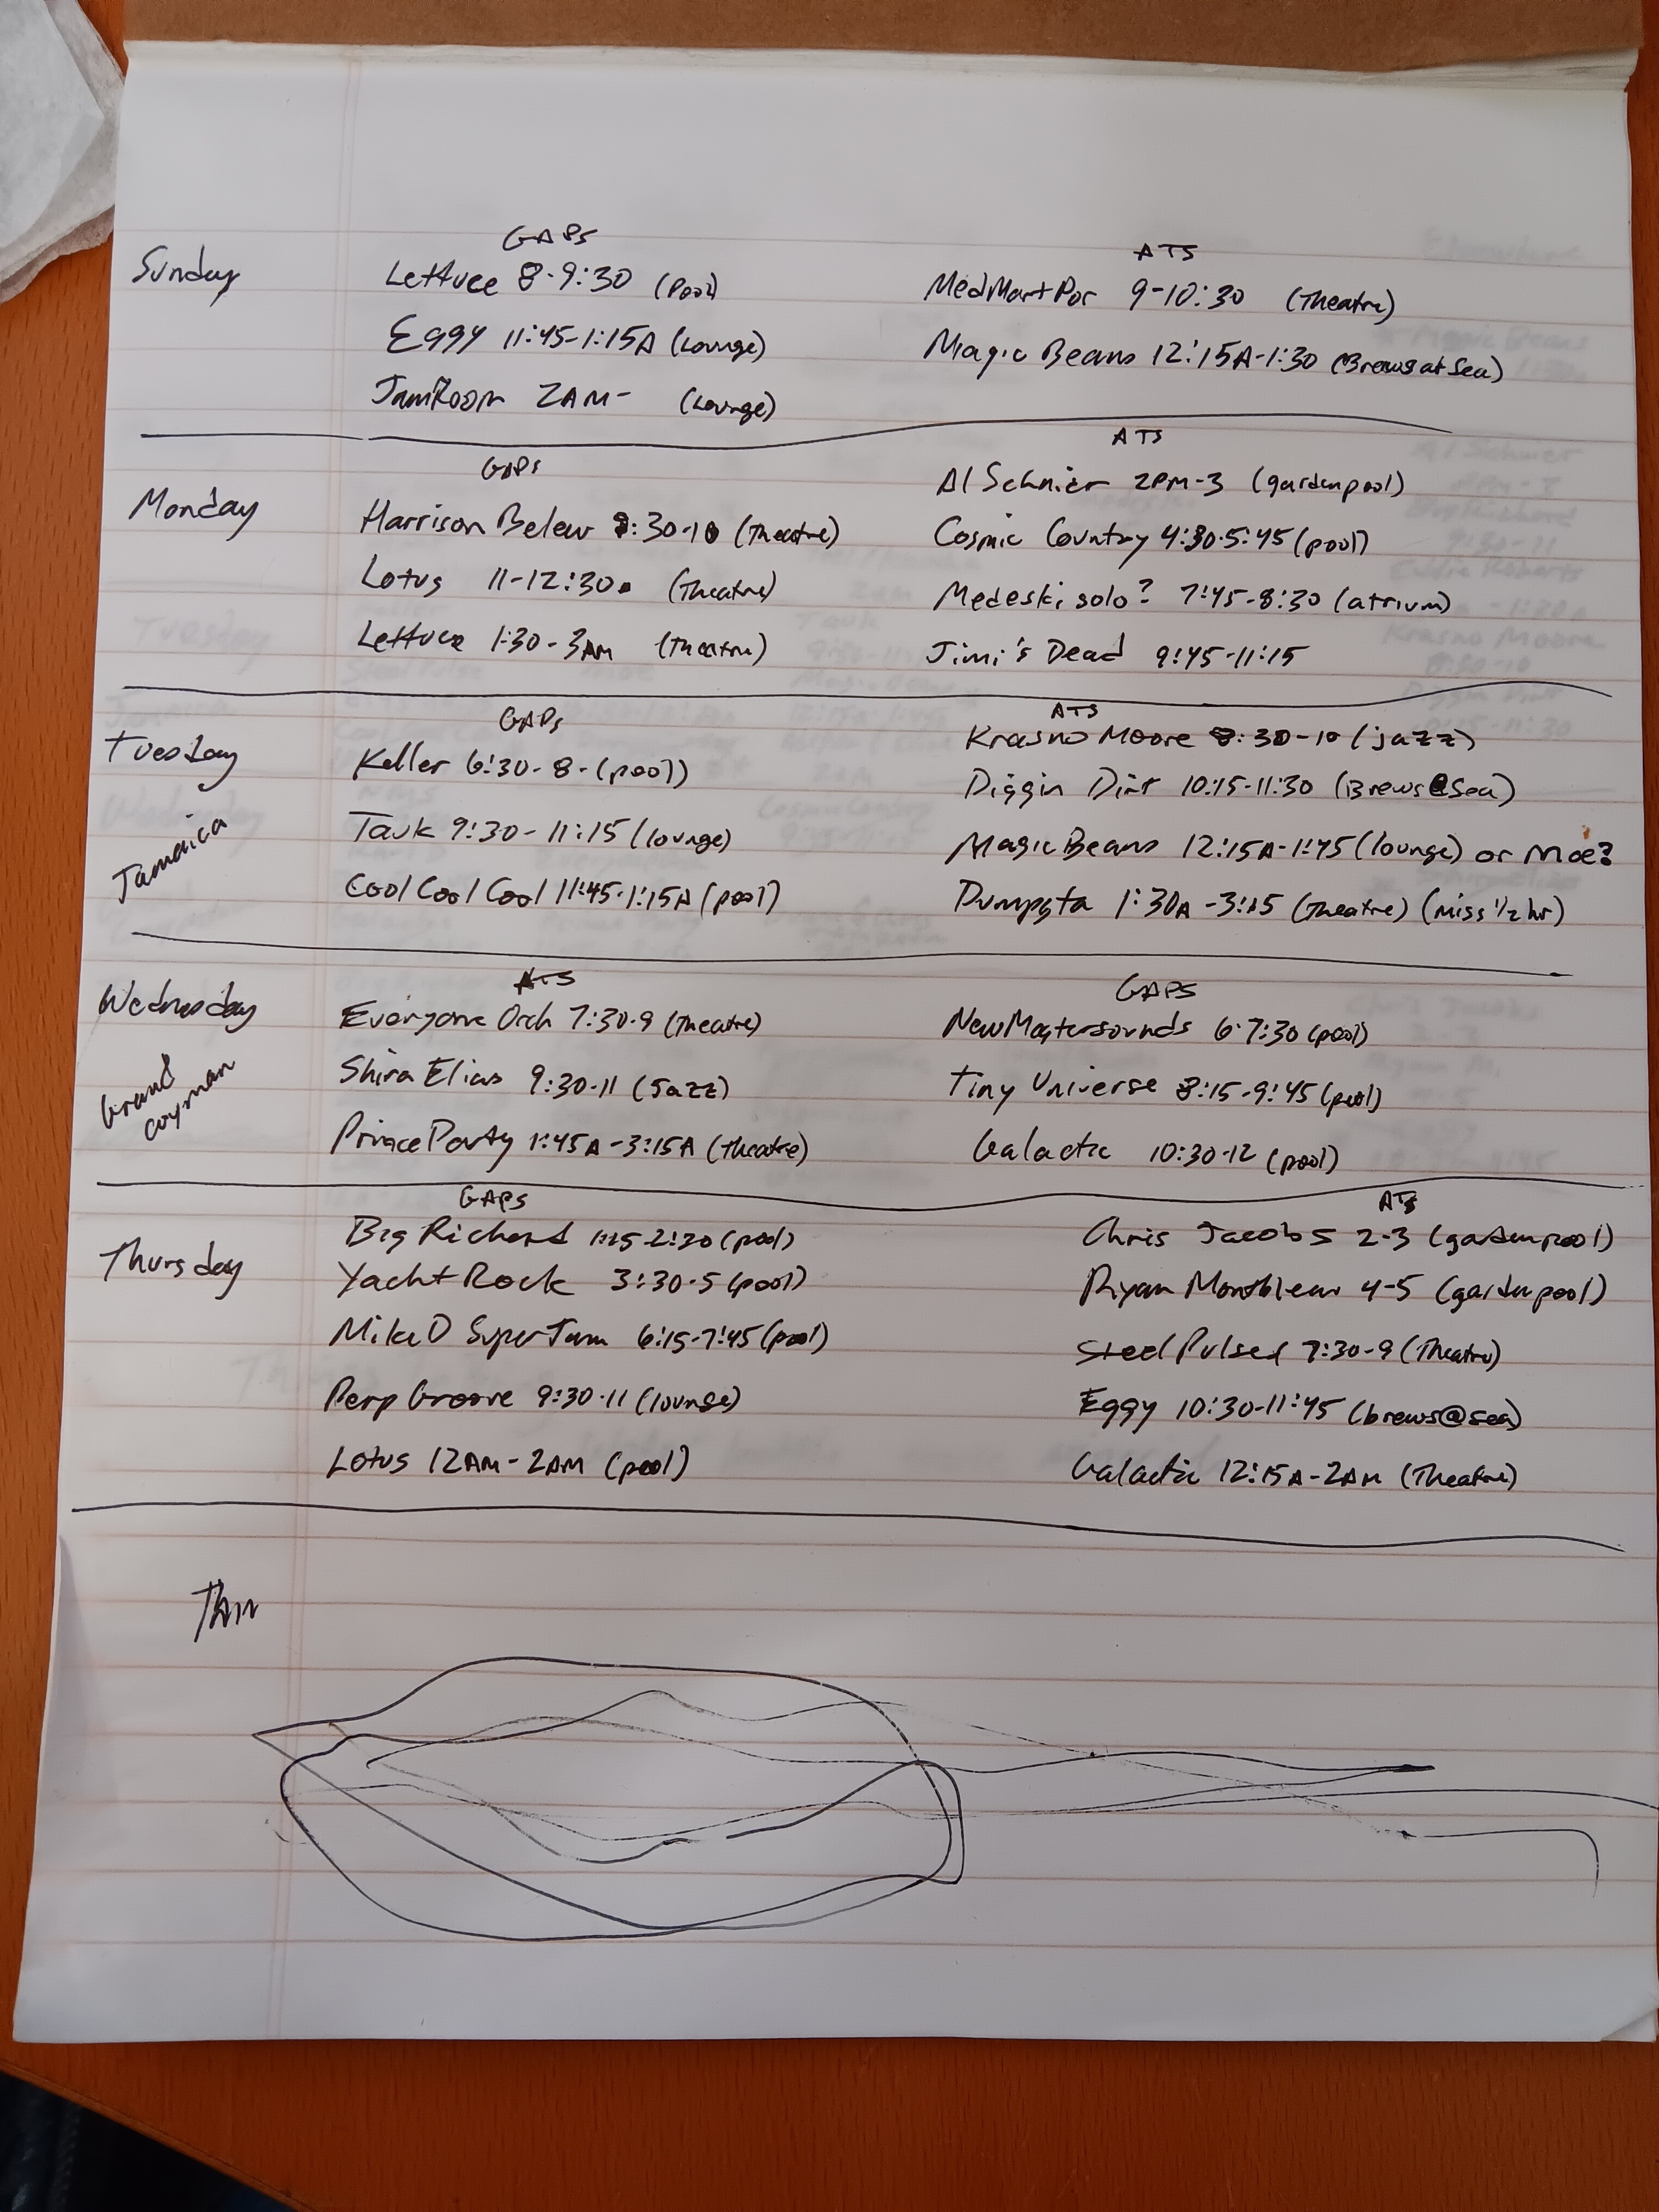 Sunday
GAPS
Lettuce 8-9:30 (Pool)
Eggy 11:45-1:15A (Lounge)
JamRoom 2AM- (Lounge)
ATS
MedMartPor 9-10:30 (Theatre)
Magic Beans 12:15A-1:30 (Brews at Sea)
Monday
GAPS
Harrison Belew 8:30-10 (Theatre)
Lotus 11-12:30 (Theatre)
Lettuce 1:30-3AM (Theatre)
ATS
Al Schnier 2PM-3 (gardenpool)
Cosmic Country 4:30-5:45 (pool)
Medeski solo? 7:45-8:30 (atrium)
Jimi's Dead 9:45-11:15
Tuesday
Jamaica
GAPS
Keller 6:30-8-(pool)
Tauk 9:30-11:15 (lounge)
Cool Cool Cool 11:45-1:15A (pool)
ATS
Krasno Moore 8:30-10 (jazz)
Diggin Dirt 10:15-11:30 (Brews@Sea)
Magic Beans 12:15A-1:45 (lounge) or Moe?
Dumpsta 1:30A-3:15 (Theatre) (miss 1/2 hr)
Wednesday
Grand
Cayman
ATS
Everyone Orch 7:30-9 (Theatre)
Shira Elias 9:30-11 (Jazz)
Prince Party 1:45A-3:15A (Theatre)
GAPS
New Mastersounds 6-7:30 (pool)
Tiny Universe 8:15-9:45 (pool)
Galactic 10:30-12 (pool)
Thursday
GAPS
Big Richard 1:15-2:30 (pool)
Yacht Rock 3:30-5 (pool)
Mike D SuperJam 6:15-7:45 (pool)
Perp Groove 9:30-11 (lounge)
Lotus 12AM-2AM (pool)
ATS
Chris Jacobs 2-3 (gardenpool)
Ryan Montbleau 4-5 (gardenpool)
Steel Pulse 7:30-9 (Theatre)
Eggy 10:30-11:45 (brews@sea)
Galactic 12:15A-2AM (Theatre)